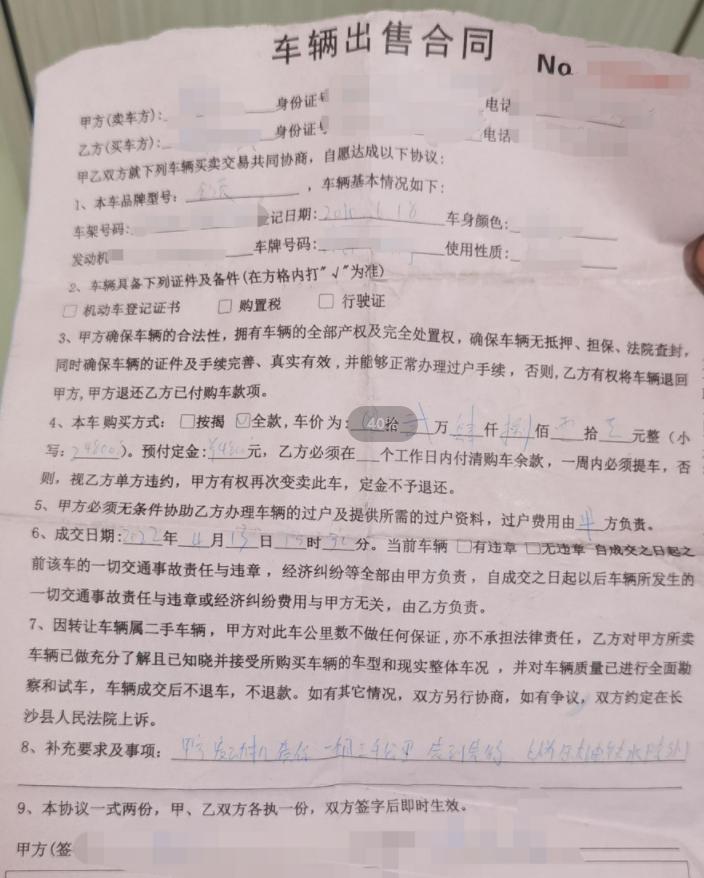 车辆出售合同
No
甲方(卖车方): 身份证 电话
乙方(买车方): 身份证 电话
甲乙双方就下列车辆买卖交易共同协商，自愿达成以下协议：
1、本车品牌型号： ，车辆基本情况如下:
车架号码: 记日期: 车身颜色:
发动机 车牌号码: 使用性质:
2、车辆具备下列证件及备件(在方格内打"√"为准)
□机动车登记证书 □购置税 □行驶证
3、甲方确保车辆的合法性，拥有车辆的全部产权及完全处置权，确保车辆无抵押、担保、法院查封，
同时确保车辆的证件及手续完善、真实有效，并能够正常办理过户手续，否则,乙方有权将车辆退回
甲方,甲方退还乙方已付购车款项。
4、本车购买方式：□按揭 ☑全款，车价为： 40拾 万肆仟捌佰 拾 元整（小
写: 24800）。预付定金: ¥4800元，乙方必须在 个工作日内付清购车余款，一周内必须提车，否
则，视乙方单方违约，甲方有权再次变卖此车，定金不予退还。
5、甲方必须无条件协助乙方办理车辆的过户及提供所需的过户资料，过户费用由 方负责。
6、成交日期:2022年4月13日 时 分。当前车辆 □有违章 □无违章 自成交之日起之
前该车的一切交通事故责任与违章，经济纠纷等全部由甲方负责，自成交之日起以后车辆所发生的
一切交通事故责任与违章或经济纠纷费用与甲方无关，由乙方负责。
7、因转让车辆属二手车辆，甲方对此车公里数不做任何保证,亦不承担法律责任，乙方对甲方所卖
车辆已做充分了解且已知晓并接受所购买车辆的车型和现实整体车况，并对车辆质量已进行全面勘
察和试车，车辆成交后不退车，不退款。如有其它情况，双方另行协商，如有争议，双方约定在长
沙县人民法院上诉。
8、补充要求及事项: 甲方发动机
9、本协议一式两份，甲、乙双方各执一份，双方签字后即时生效。
甲方(签